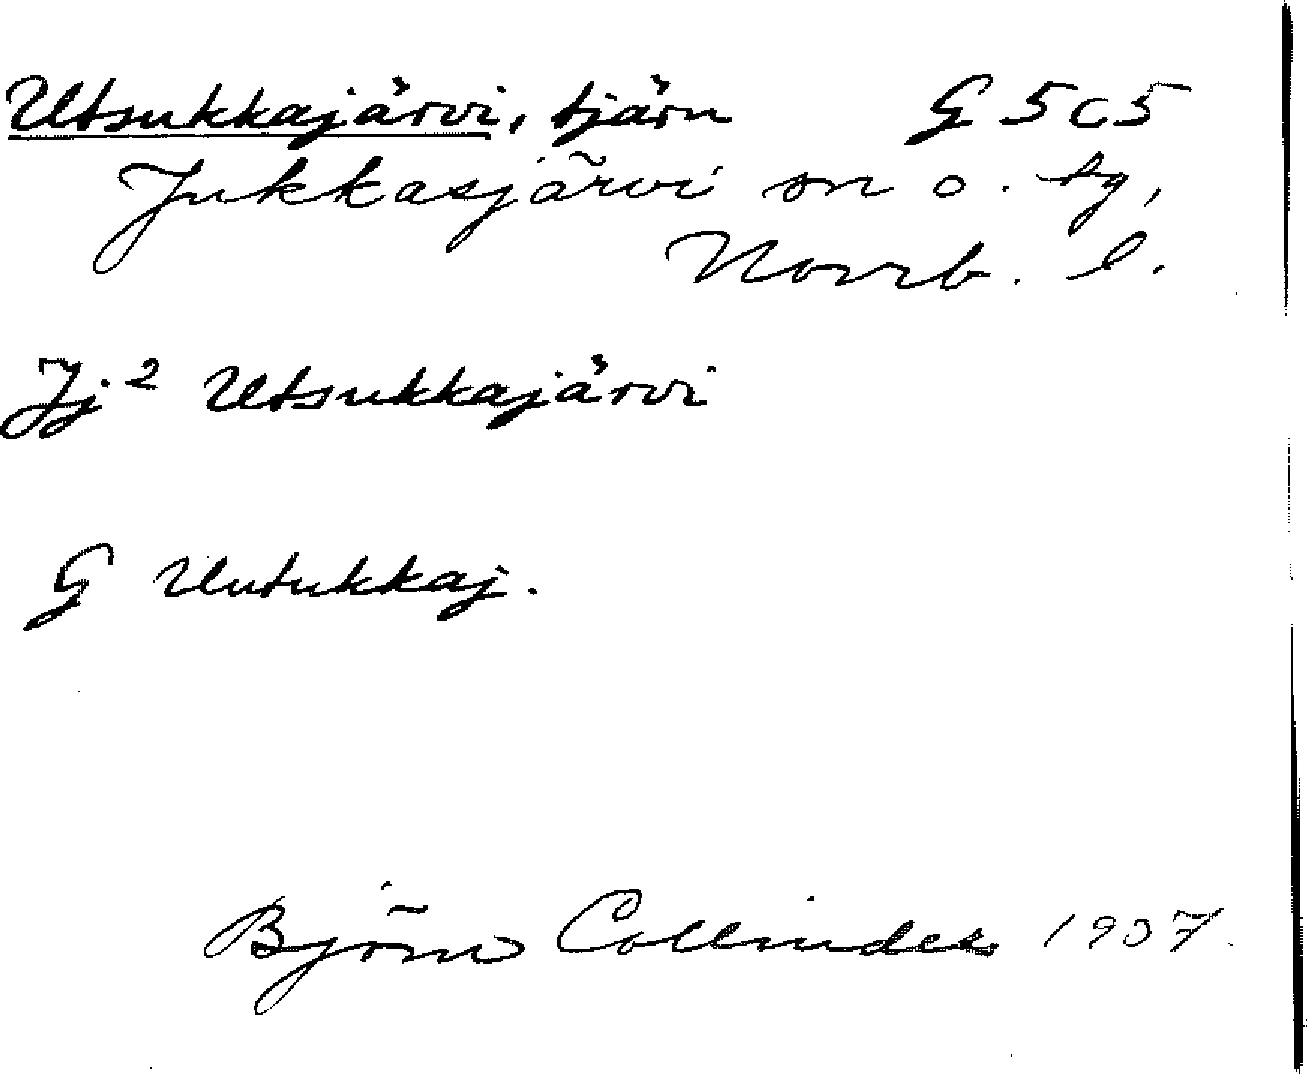 Utsukkajärvi, tjärn G 5 c 5
Jukkasjärvi sn o. tg,
Norrb. l.
Jj² Utsukkajärvi
G Uutukkaj.
Björn Collinder 1937